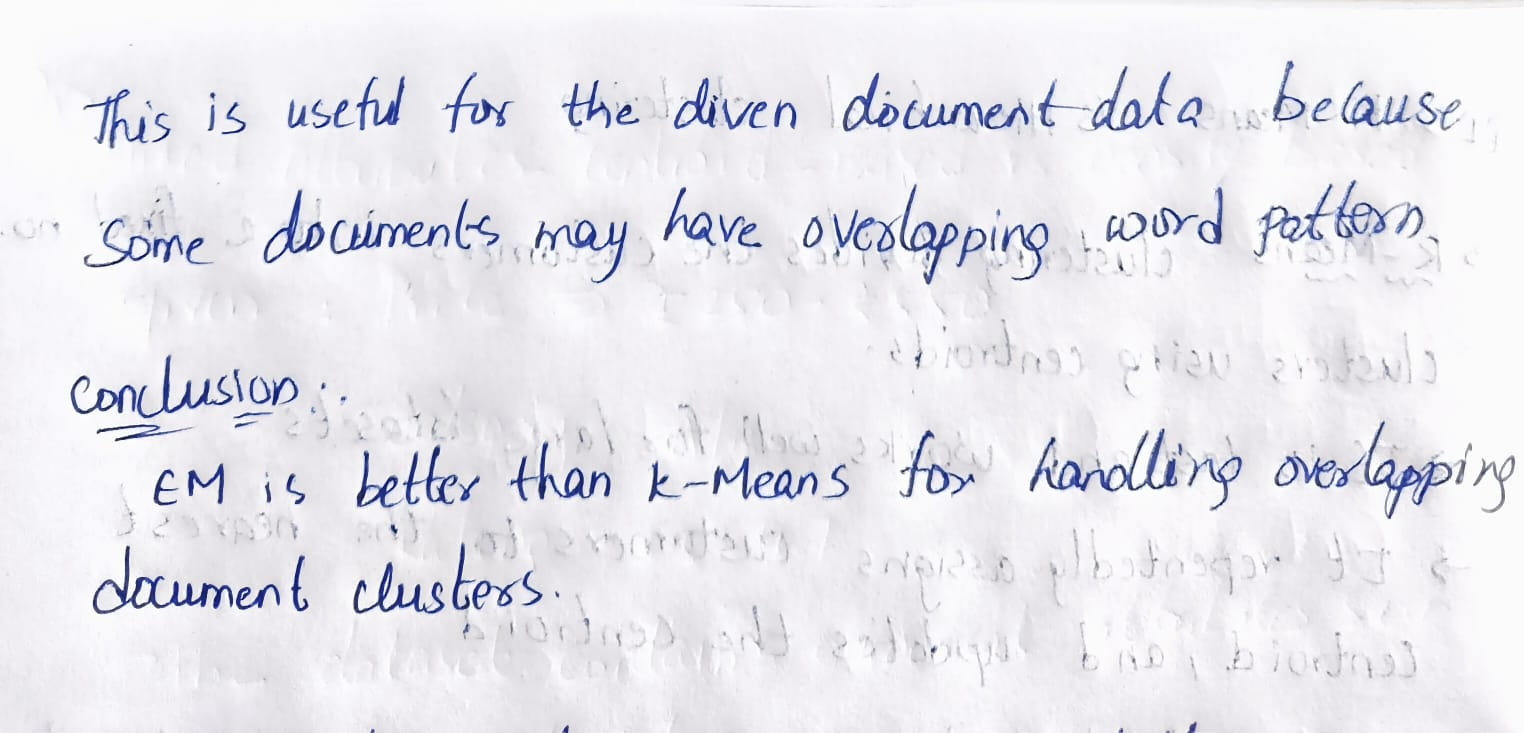 This is useful for the diven document data because
some documents may have overlapping word pattern.
Conclusion:
EM is better than k-Means for handling overlapping
document clusters.